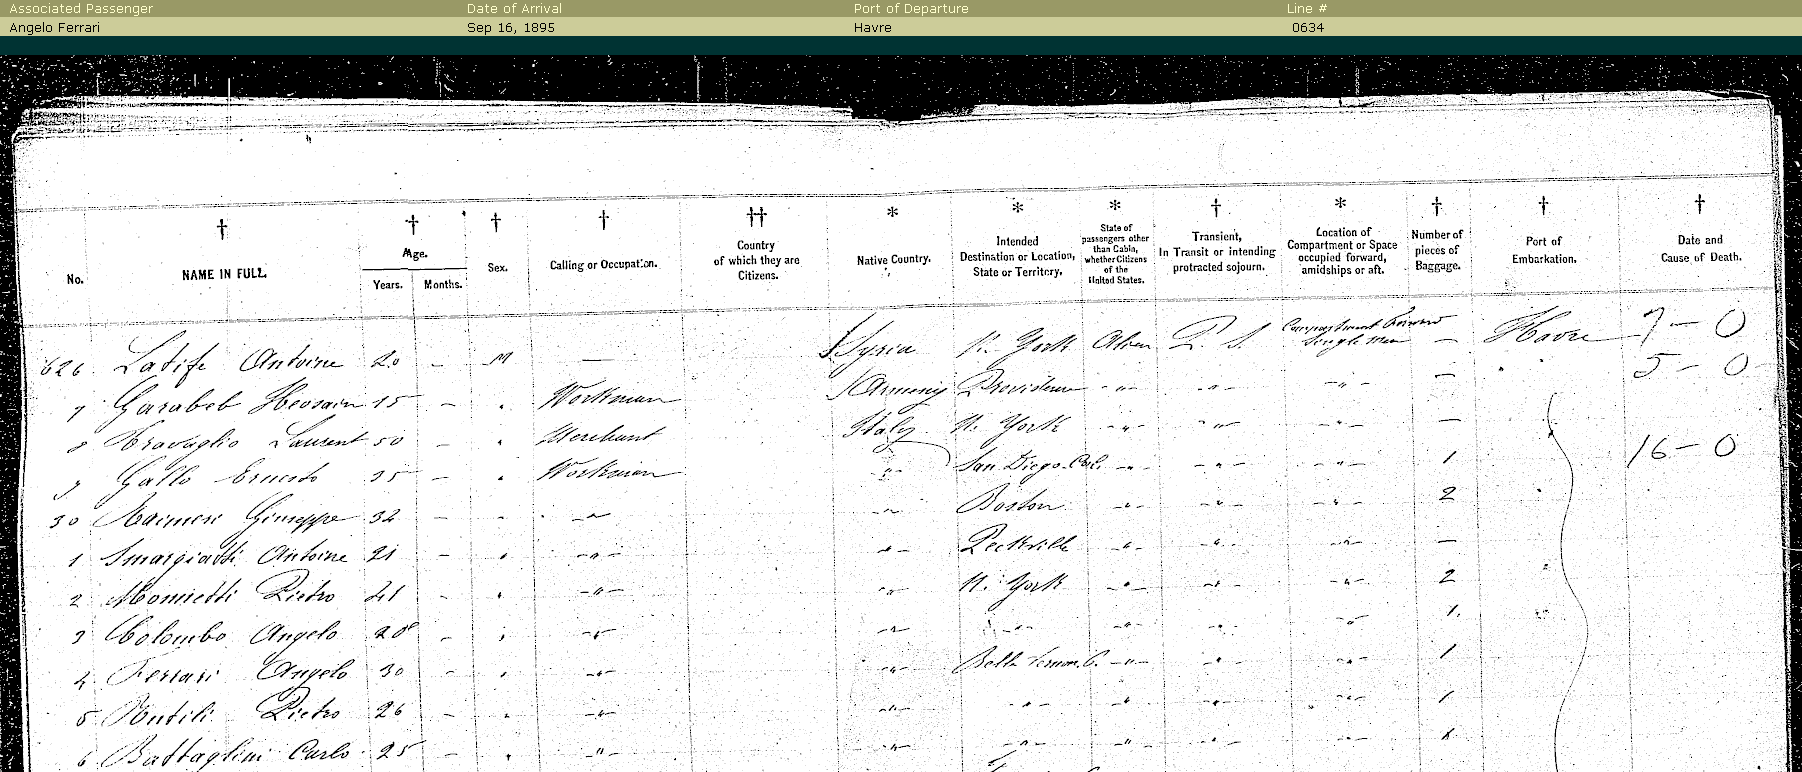 Associated Passenger Date of Arrival Port of Departure Line #
Angelo Ferrari Sep 16, 1895 Havre 0634
† † † † †† * * * † * † † †
No. NAME IN FULL. Age. Years. Months. Sex. Calling or Occupation. Country of which they are Citizens. Native Country. Intended Destination or Location, State or Territory. State of passengers other than Cabin, whether Citizens of the United States. Transient, In Transit or intending protracted sojourn. Location of Compartment or Space occupied forward, amidships or aft. Number of pieces of Baggage. Port of Embarkation. Date and Cause of Death.
626 Latife Antoine 20 - M — Syria N. York Alien P. S. Compartment forward Single Men - Havre 7 - 0
7 Garabeb 15 - " Workman Armeny Providence -"- -"- -"- - " 5 - 0
8 Laurent 50 - " Merchant Italy N. York -"- -"- -"- -
9 Gallo Ernesto 35 - " Workman -"- San Diego Cal. -"- -"- -"- 1 16 - 0
30 Giuseppe 32 - " -"- -"- Boston -"- -"- -"- 2 "
1 Antoine 21 - " -"- -"- Peckville -"- -"- -"- -
2 Pietro 21 - " -"- -"- N. York -"- -"- -"- 2 "
3 Colombo Angelo 20 - " -"- -"- -"- -"- -"- -"- 1 "
4 Ferrari Angelo 30 - " -"- -"- Bella -"- -"- -"- 1
5 Pietro 26 - " -"- -"- -"- -"- -"- -"- 1
6 Battaglini Carlo 25 - " -"- -"- -"- -"- -"- -"- 1